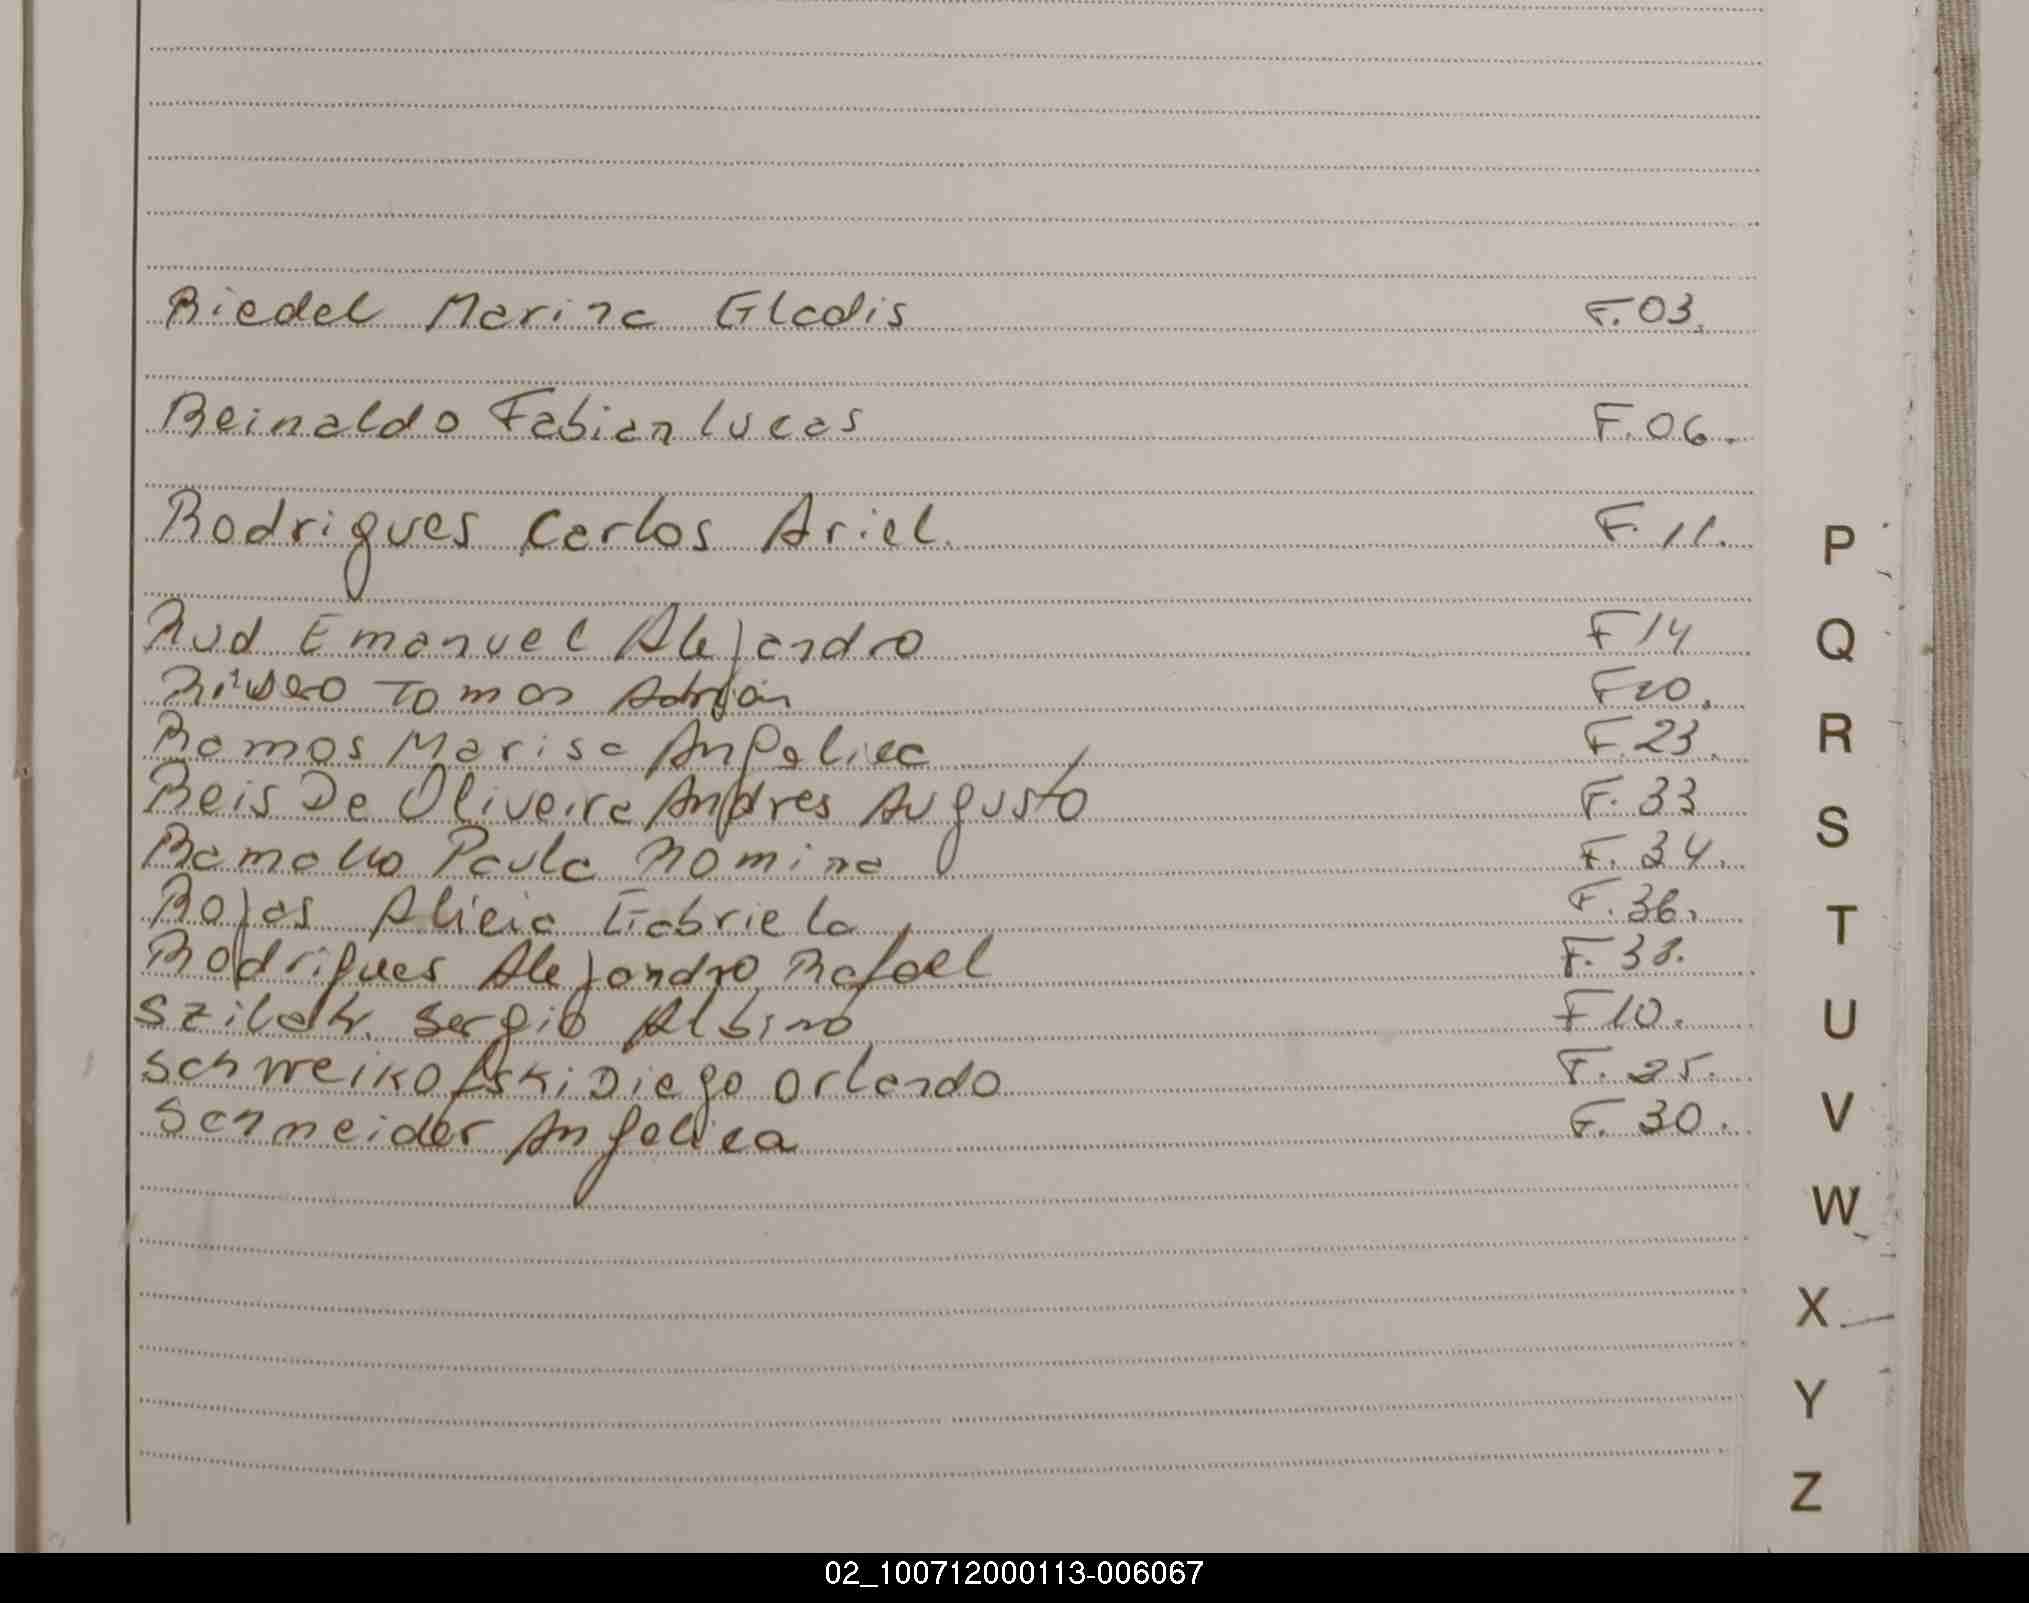 Riedel Marina Gladis F.03.
Reinaldo Fabian Lucas F.06.
Rodrigues Carlos Ariel. F.11.
P
Rud Emanuel Alejandro F14
Q
Tomas Adrián F20.
Ramos Marisa Angelica F.23.
R
Reis De Oliveira Andres Augusto F.33
S
Ramallo Paula Romina F.34.
Rojas Alicia Gabriela F.36.
T
Rodrigues Alejandro Rafael F.38.
Sergio Albino F10.
U
Schweikofski Diego Orlando F.25.
V
Schneider Angelica F.30.
W
X
Y
Z
02_100712000113-006067